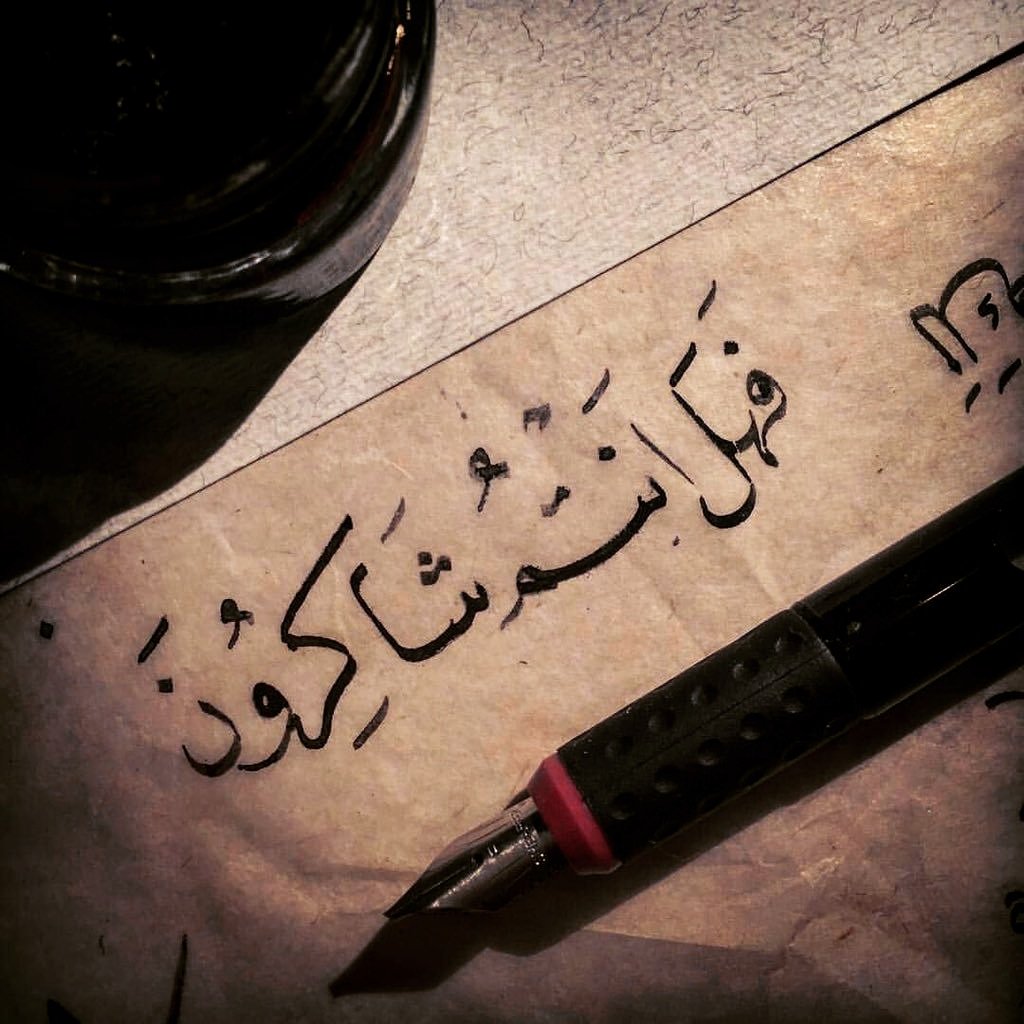 فَهَلْ اَنْتُمْ شَاكِرُونَ